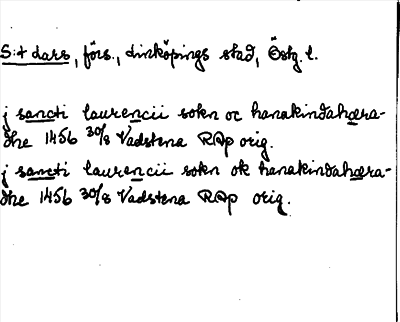 S:t Lars, förs., Linköpings stad, Östg. l.
j sancti laurencii sokn oc hanakindahæra-
dhe 1456 30/8 Vadstena RAp orig.
j sancti laurencii sokn ok hanakindahæra-
dhe 1456 30/8 Vadstena RAp orig.